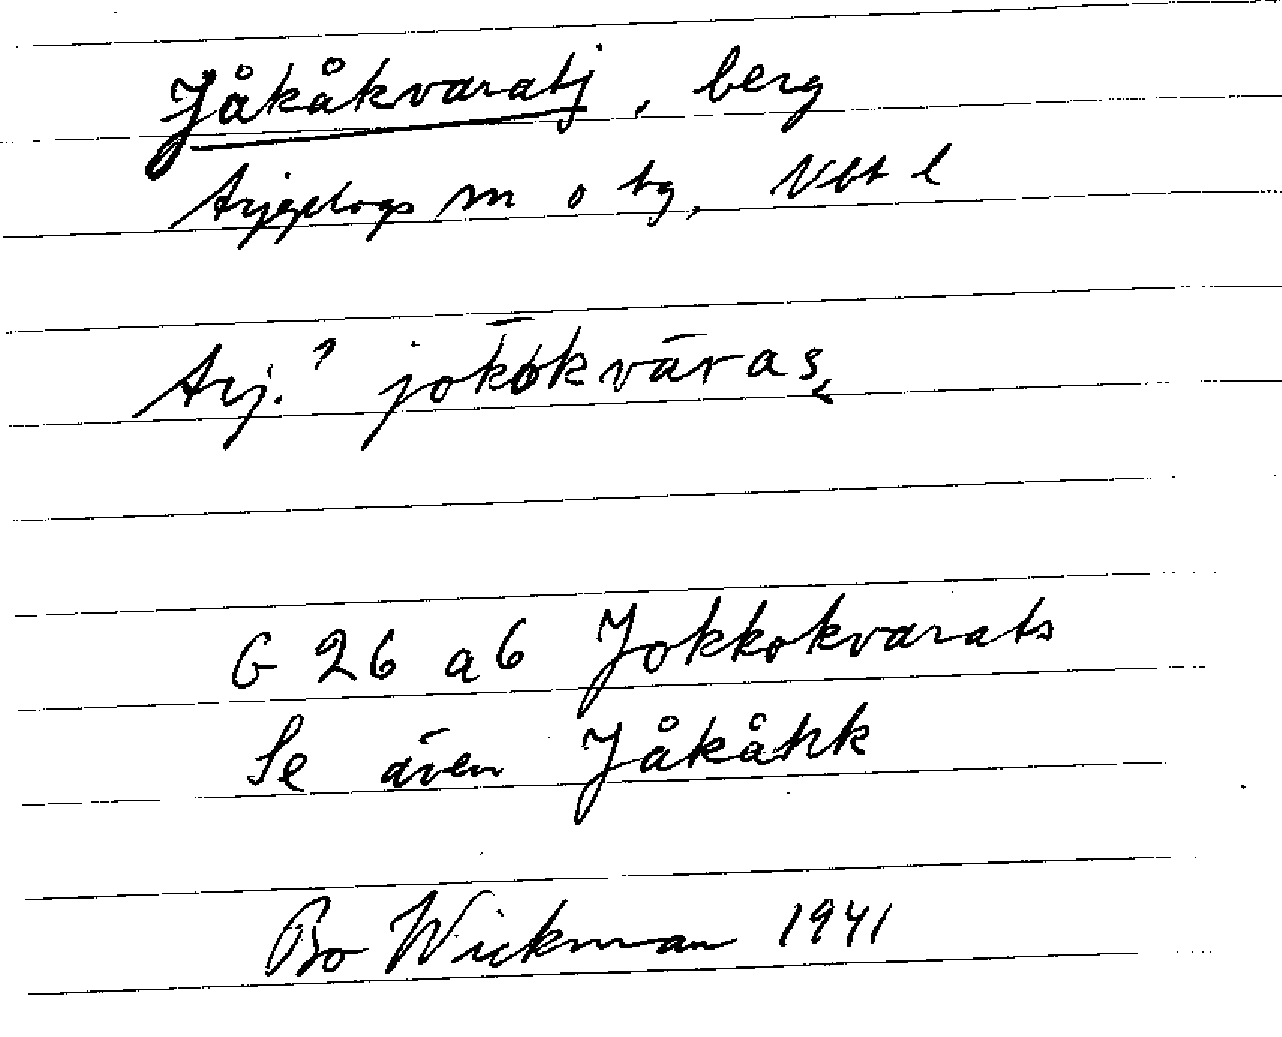 Jåkåkvaratj, berg
Arjeplogs sn o tg, Vbt l
Arj.? jokŏ̄kvāras̜
G 26 a6 Jokkokvarats
Se även Jåkåkk
Bo Wickman 1941